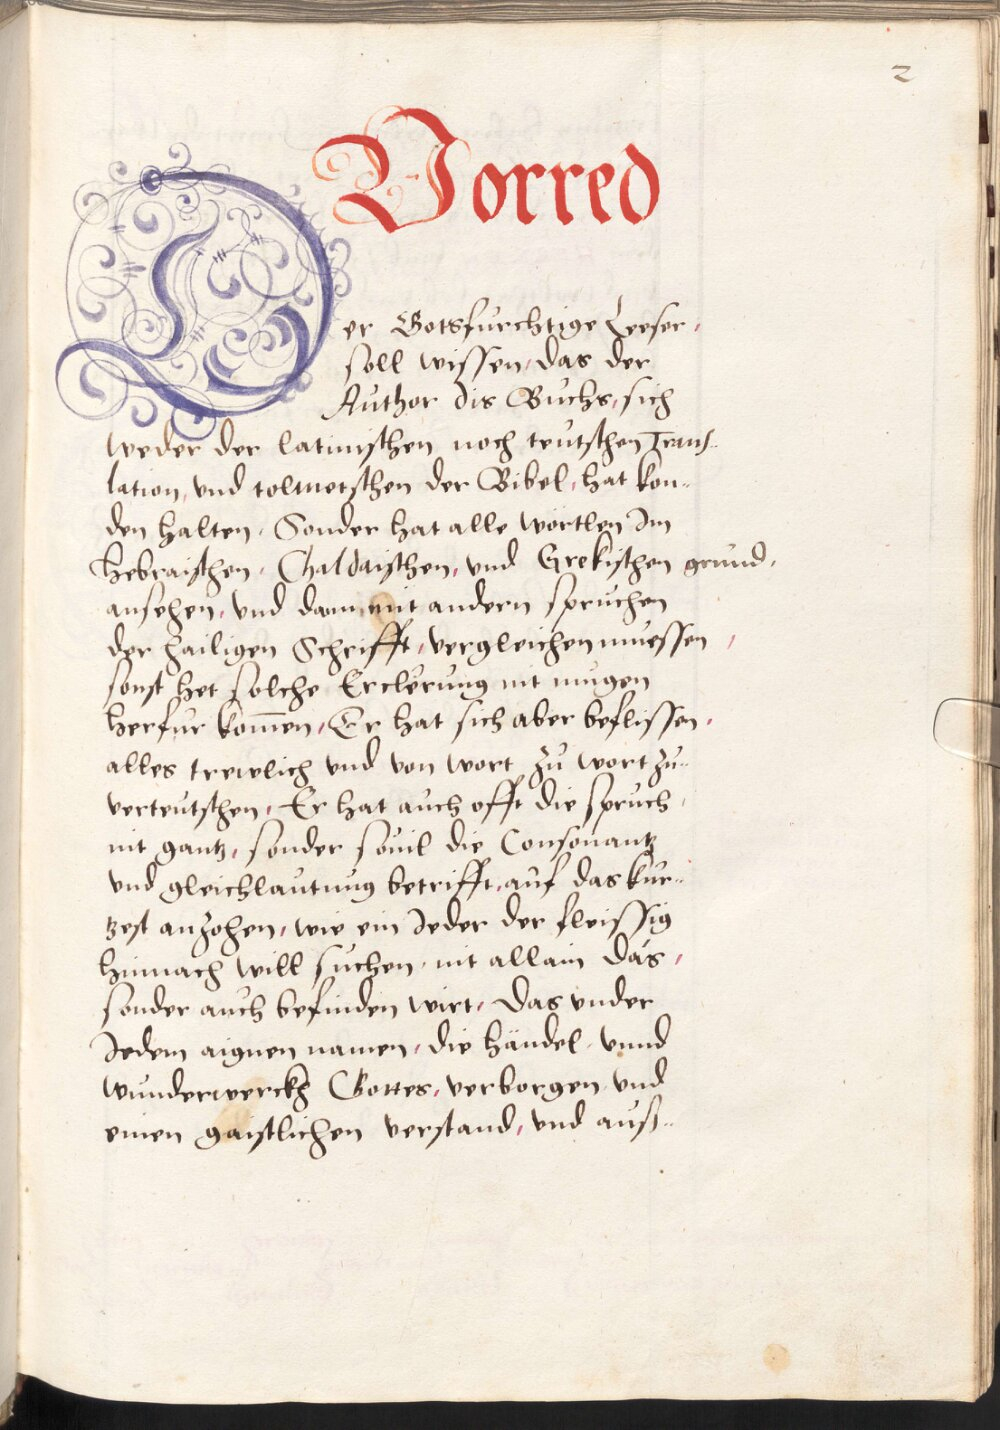 2
Vorred
Der Gotsfurchtige Leeser,
soll wissen, das der
Author dis Buchs, sich
weder der latinischen noch teutschen Trans-
lation, vnd tolmetschen der Bibel, hat kon-
den halten, Sonder hat alle wörtlen Im
hebraischen, Chaldaischen, vnd Grekischen grund,
ansehen, vnd dann mit andern spruchen
der hailigen Schrifft, vergleichen muessen,
sonst het solche Erclerung nit mugen
herfur kom̄en, Er hat sich aber beflissen,
alles trewlich vnd von wort zu wort zu-
verteutschen, Er hat auch offt die spruch,
nit gantz, sonder souil die Consonantz
vnd gleichlautung betrifft, auf das kür-
zest anzohen, wie ein Jeder der fleissig
hinnach will suchen, nit allain das,
sonder auch befinden wirt, Das vnder
Jedem aignen namen, die händel, vnnd
wunderwerckh Gottes, verborgen, vnd
einen gaistlichen verstand, vnd auß-